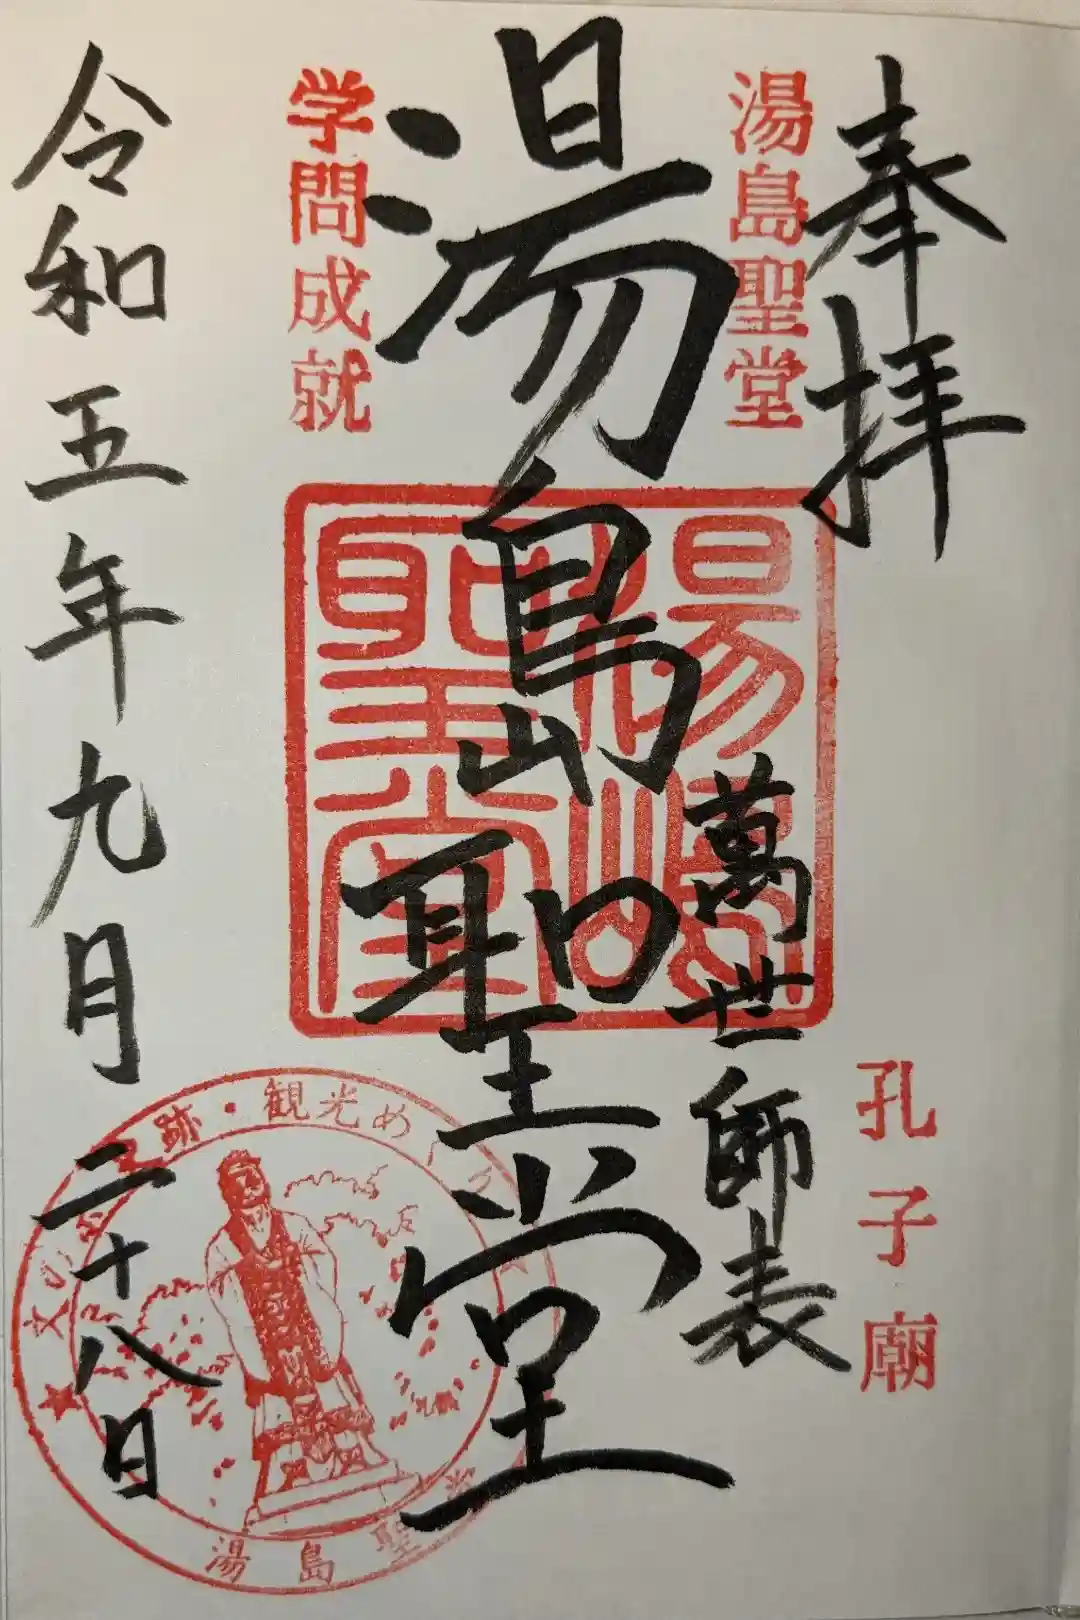 奉拝
湯島聖堂
孔子廟
萬世師表
湯島聖堂
湯島聖堂
学問成就
令和五年九月二十八日
跡・観光め
湯島聖堂